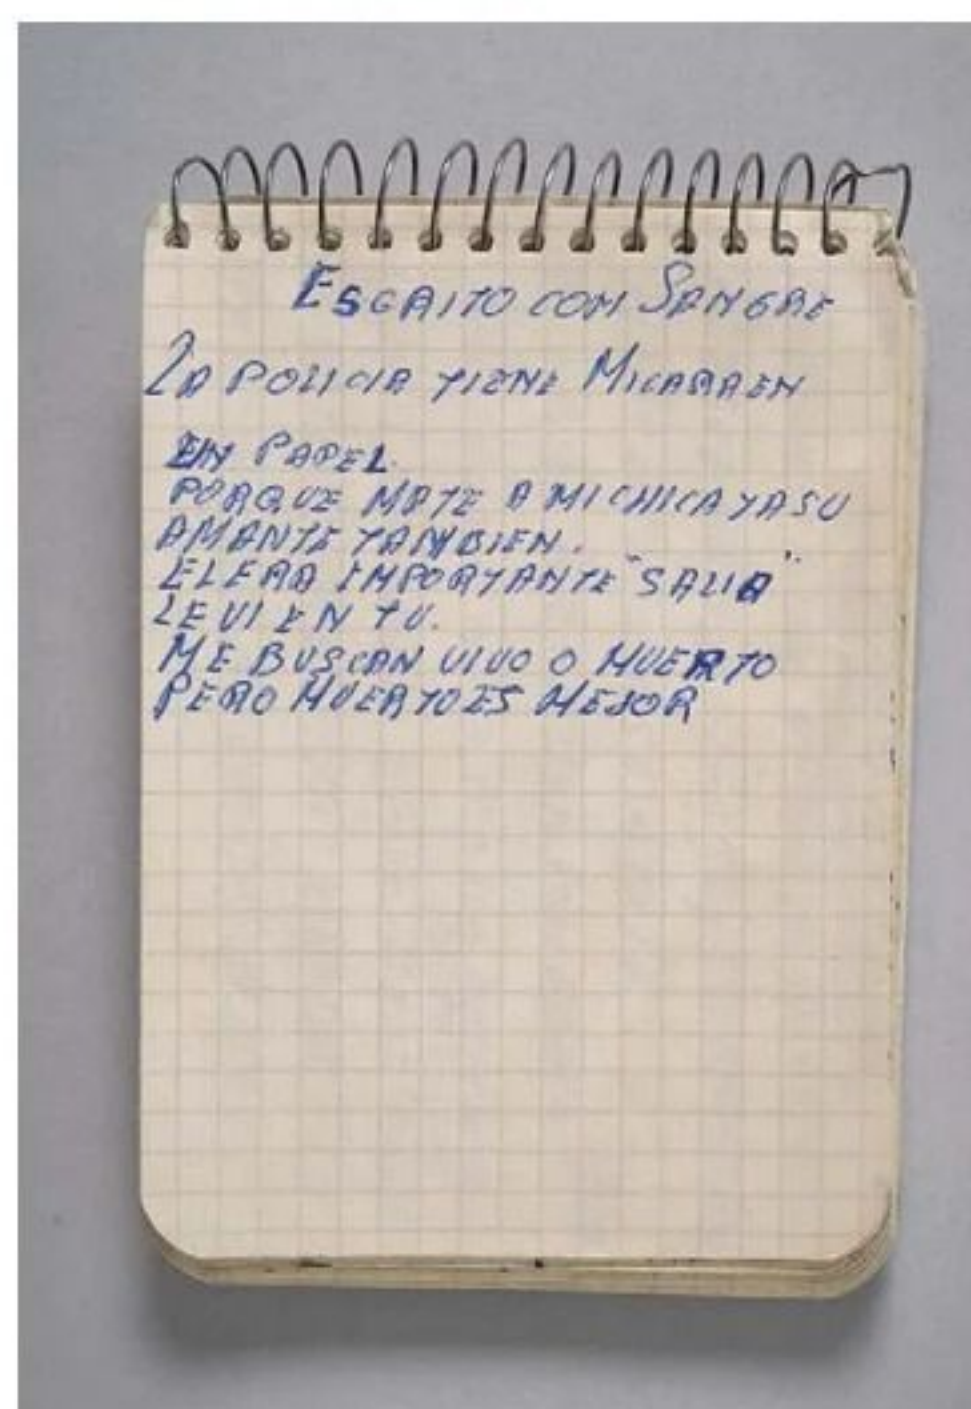 ESCRITO COM SANGRE
LA POLICIA TIENE MICARAEN
EN PAPEL.
PORQUE MATE A MICHICAYASU
AMANTE TAMBIEN.
ELERA IMPORTANTE "SALIA"
LEVI EN TU.
ME BUSCAN VIVO O MUERTO
PERO MUERTOES MEJOR